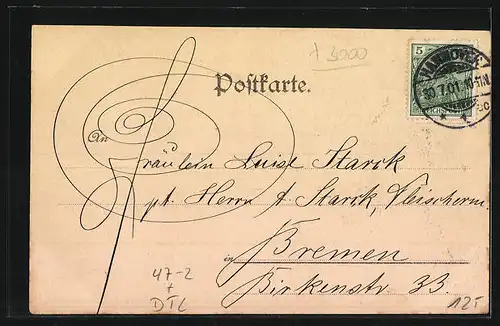 + 3000
5
HANNOVER
30.7.01.10-11V.
Postkarte.
An
Fräulein Luise Starck
pt. Herrn A. Starck, Fleischerm.
in Bremen
Birkenstr. 33.
47-2
+
DTL
12T